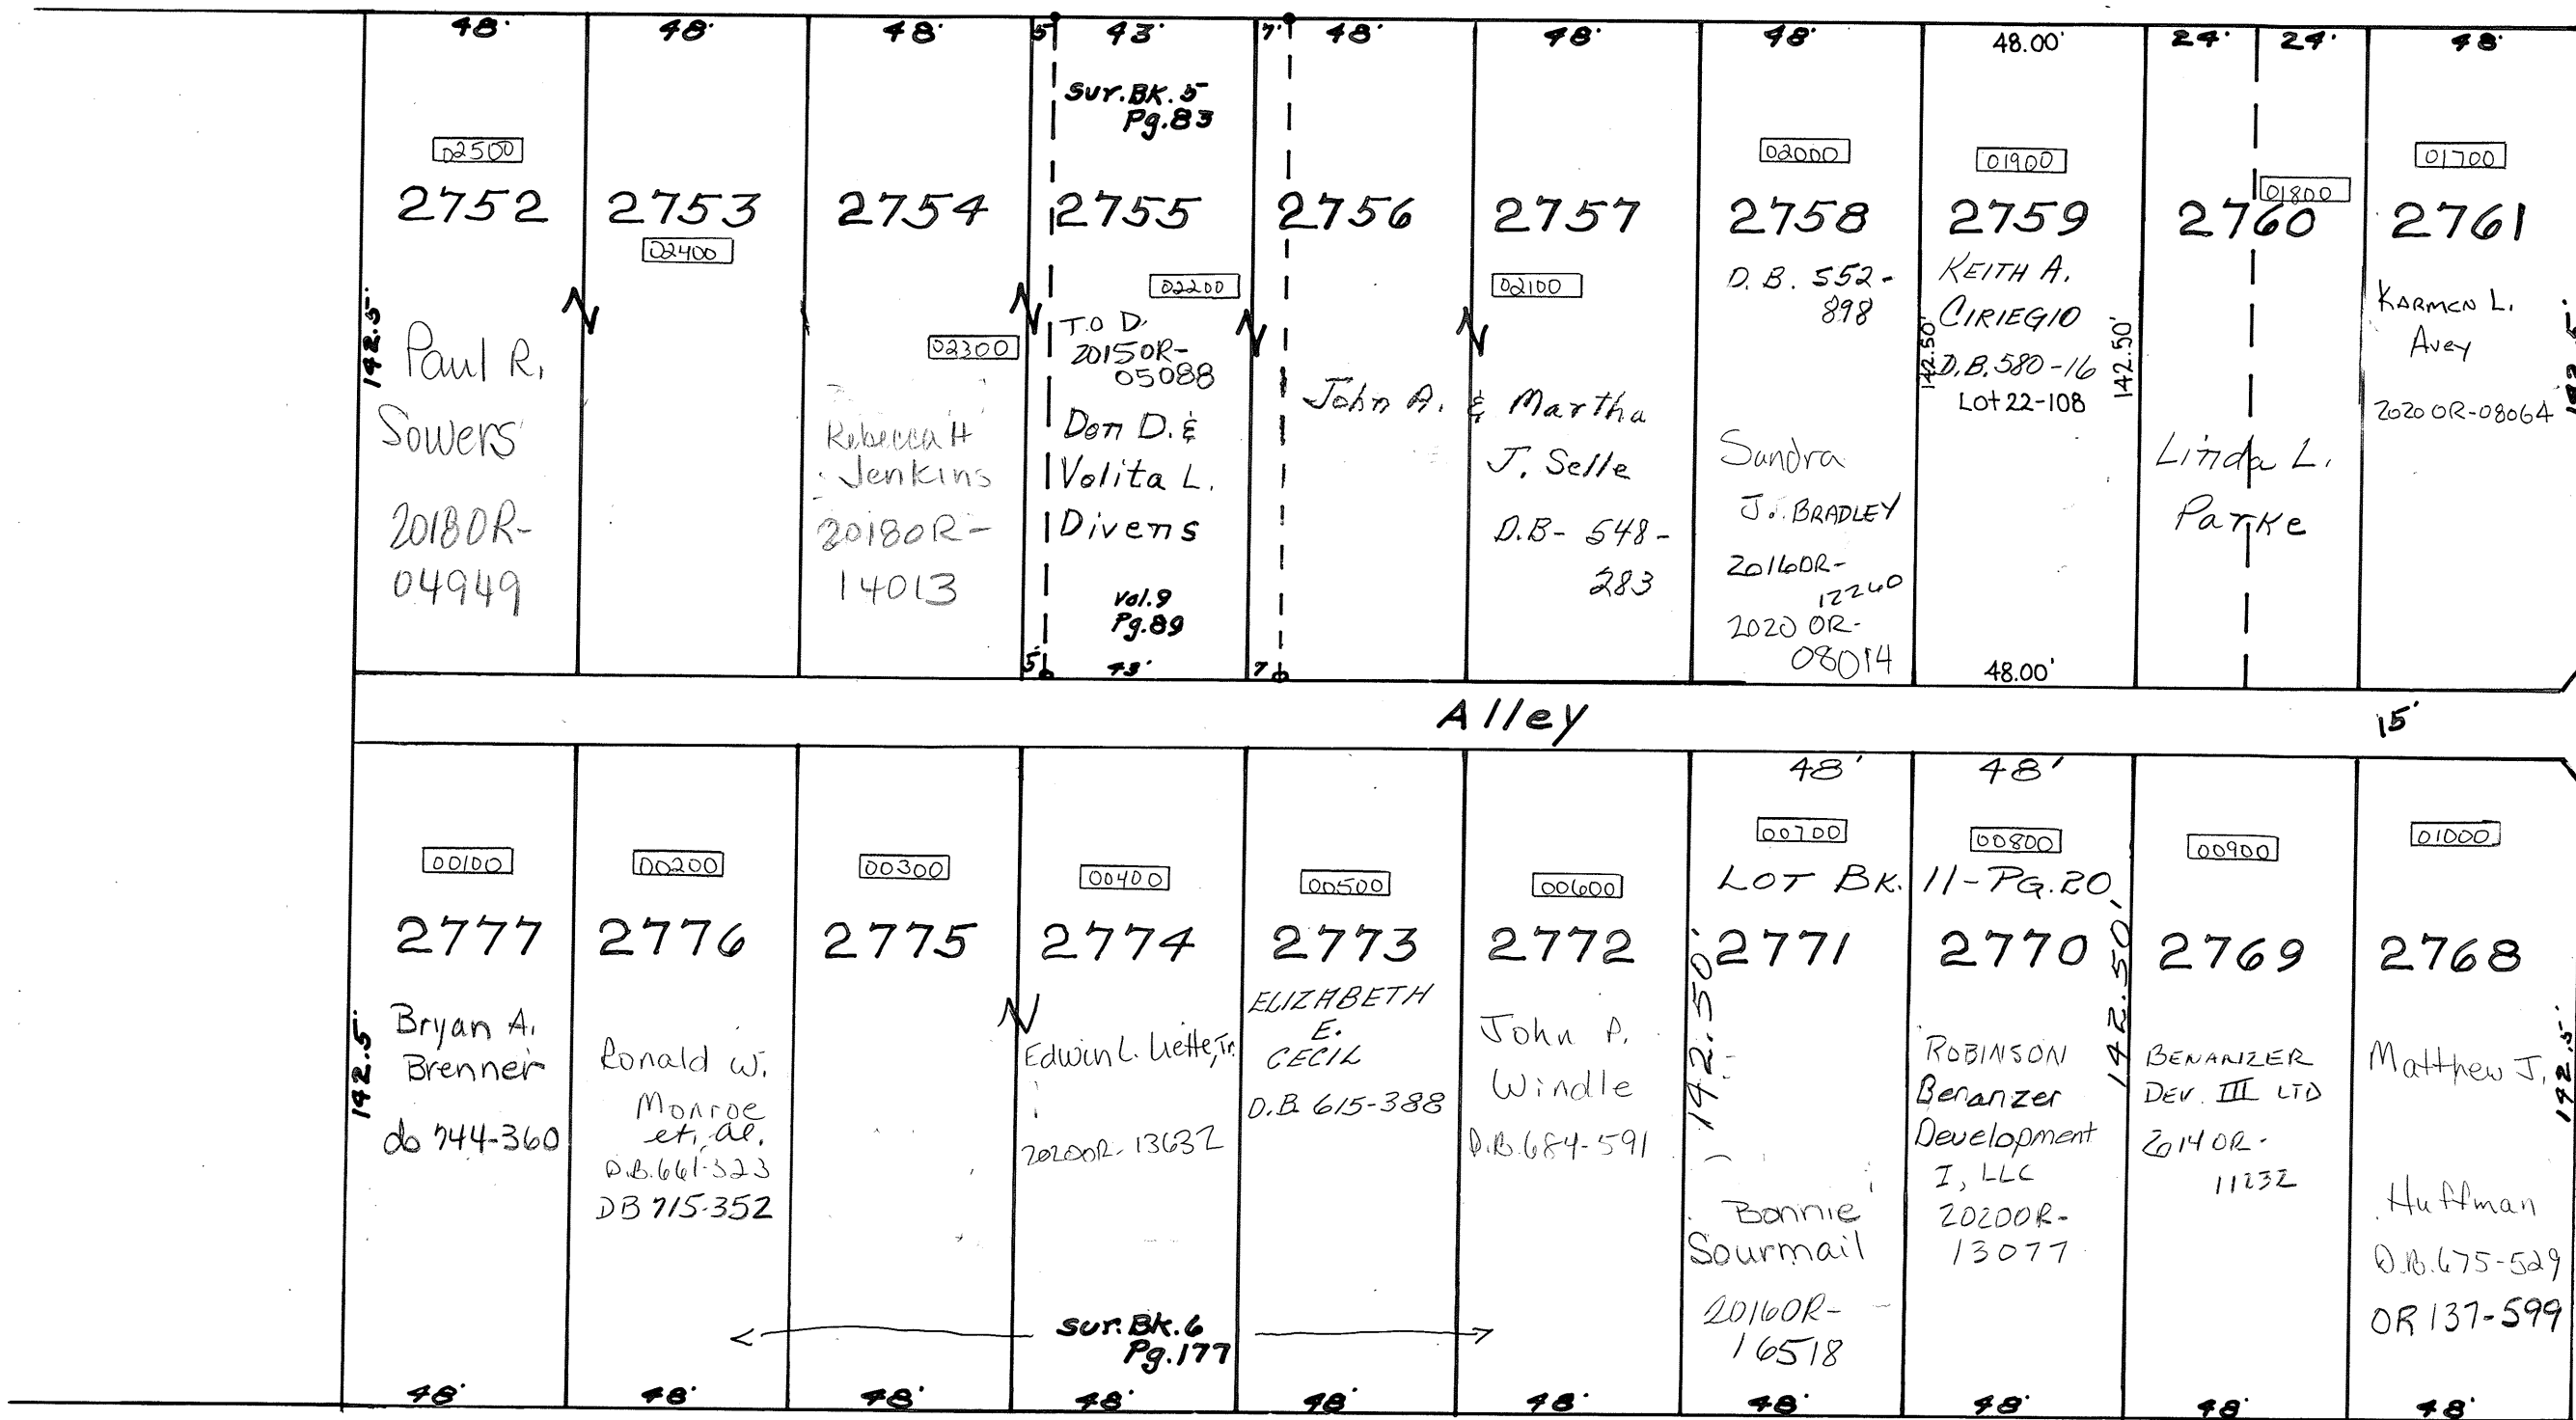 48' 48' 48' 5' 43' 7' 48' 48' 48' 48.00' 24' 24' 48'
Sur. BK. 5
Pg. 83
02500
2752
142.5'
Paul R.
Sowers
2018OR-
04949
2753
02400
2754
02300
Rebecca H
Jenkins
2018OR-
14013
2755
02200
T.O D.
2015OR-
05088
Don D. &
Volita L.
Divens
Vol. 9
Pg. 89
5' 43' 7'
2756
2757
02100
John A. & Martha
J. Selle
D.B- 548-
283
02000
2758
D.B. 552-
898
Sandra
J. BRADLEY
2016OR-
12240
2020 OR-
08014
01900
2759
KEITH A.
CIRIEGIO
D.B. 580-16
Lot 22-108
142.50'
142.50'
48.00'
01800
2760
Linda L.
Parke
01700
2761
KARMEN L.
Avey
2020 OR-08064
142.5'
Alley
15'
00100
2777
142.5'
Bryan A.
Brenner
db 744-360
48'
00200
2776
Ronald W.
Monroe
et. al.
D.B. 661-323
DB 715-352
48'
00300
2775
48'
00400
2774
Edwin L. Liette, Tr.
2020OR-13632
Sur. Bk. 6
Pg. 177
48'
00500
2773
ELIZABETH
E.
CECIL
D.B. 615-388
48'
00600
2772
John P.
Windle
D.B. 684-591
48'
48' 48'
00700
00800
LOT BK. 11-PG. 20
2771
142.50'
Bonnie
Sourmail
2016OR-
16518
48'
2770
142.50'
ROBINSON
Benanzer
Development
I, LLC
2020OR-
13077
48'
00900
2769
BENANZER
DEV. III LTD
2014 OR-
11232
48'
01000
2768
Matthew J.
Huffman
D.B. 675-529
OR 137-599
142.5'
48'